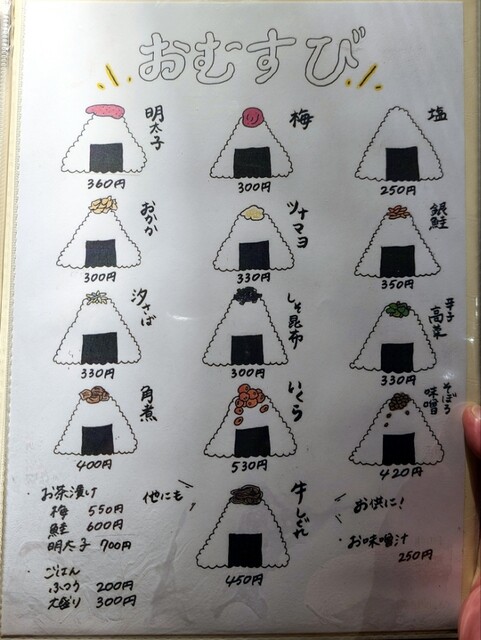 おむすび
明太子
360円
梅
300円
塩
250円
おかか
300円
ツナマヨ
330円
銀鮭
350円
汐さば
330円
しそ昆布
300円
辛子
高菜
330円
角煮
400円
いくら
530円
そぼろ
味噌
420円
他にも
牛しぐれ
450円
・お茶漬け
梅 550円
鮭 600円
明太子 700円
・ごはん
ふつう 200円
大盛り 300円
お供に!
・お味噌汁
250円